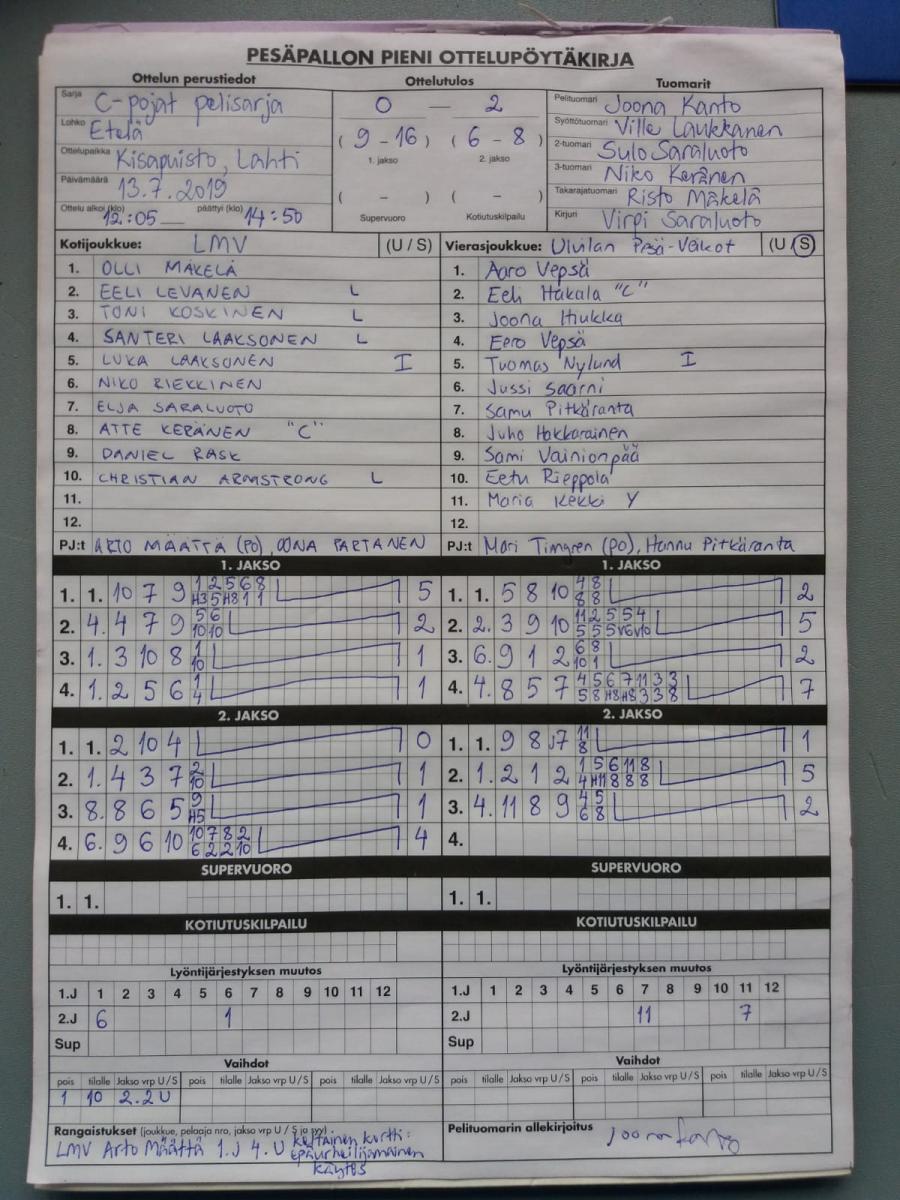 PESÄPALLON PIENI OTTELUPÖYTÄKIRJA
Ottelun perustiedot
Sarja C-pojat pelisarja
Lohko Etelä
Ottelupaikka Kisapuisto, Lahti
Päivämäärä 13.7.2019
Ottelu alkoi (klo) 12:05 päättyi (klo) 14:50
Ottelutulos
0 — 2
(9-16) (6-8)
1. jakso 2. jakso
( - ) ( - )
Supervuoro Kotiutuskilpailu
Tuomarit
Pelituomari Joona Kanto
Syöttötuomari Ville Laukkanen
2-tuomari Sulo Saraluoto
3-tuomari Niko Keränen
Takarajatuomari Risto Mäkelä
Kirjuri Virpi Saraluoto
Kotijoukkue: LMV (U / S)
1. OLLI MÄKELÄ
2. EELI LEVANEN L
3. TONI KOSKINEN L
4. SANTERI LAAKSONEN L
5. LUKA LAAKSONEN I
6. NIKO RIEKKINEN
7. ELJA SARALUOTO
8. ATTE KERÄNEN "C"
9. DANIEL RASK
10. CHRISTIAN ARMSTRONG L
11.
12.
PJ:t ARTO MÄÄTTÄ (PO), OONA PARTANEN
Vierasjoukkue: Ulvilan Pesä-Veikot (U / S)
1. Aaro Vepsä
2. Eeli Hakala "C"
3. Joona Hiukka
4. Eero Vepsä
5. Tuomas Nylund I
6. Jussi Saarni
7. Samu Pitkäranta
8. Juho Hokkarainen
9. Sami Vainionpää
10. Eetu Rieppola
11. Maria Kekki Y
12.
PJ:t Mari Timgren (PO), Hannu Pitkäranta
1. JAKSO
1. 1. 10 7 9 1 2 5 6 8 5
H3 5 H8 1 1
2. 4. 4 7 9 5 6 2
10 10
3. 1. 3 10 8 1 1
10
4. 1. 2 5 6 1 1
4
2. JAKSO
1. 1. 2 10 4 0
2. 1. 4 3 7 2 1
10
3. 8. 8 6 5 9 1
H5
4. 6. 9 6 10 10 7 8 2 4
6 2 2 10
SUPERVUORO
1. 1.
KOTIUTUSKILPAILU
1. JAKSO
1. 1. 5 8 10 4 8 2
8 8
2. 2. 3 9 10 11 2 5 5 4 5
5 5 5 V6 V10
3. 6. 9 1 2 6 8 2
10 1
4. 4. 8 5 7 4 5 6 7 11 3 3 7
5 8 H8 H8 3 3 8
2. JAKSO
1. 1. 9 8 7 11 1
8
2. 1. 2 1 2 1 5 6 11 8 5
4 H11 8 8 8
3. 4. 11 8 9 4 5 2
6 8
4.
SUPERVUORO
1. 1.
KOTIUTUSKILPAILU
Lyöntijärjestyksen muutos
1.J 1 2 3 4 5 6 7 8 9 10 11 12
2.J 6 1
Sup
Vaihdot
pois tilalle Jakso vrp U / S pois tilalle Jakso vrp U / S pois tilalle
1 10 2.2 U
Rangaistukset (joukkue, pelaaja nro, jakso vrp U / S ja syy)
LMV Arto Määttä 1.J 4.U keltainen kortti:
epäurheilijamainen
käytös
Lyöntijärjestyksen muutos
1.J 1 2 3 4 5 6 7 8 9 10 11 12
2.J 11 7
Sup
Vaihdot
pois tilalle Jakso vrp U / S pois tilalle Jakso vrp U / S pois tilalle
Pelituomarin allekirjoitus Joona Kanto